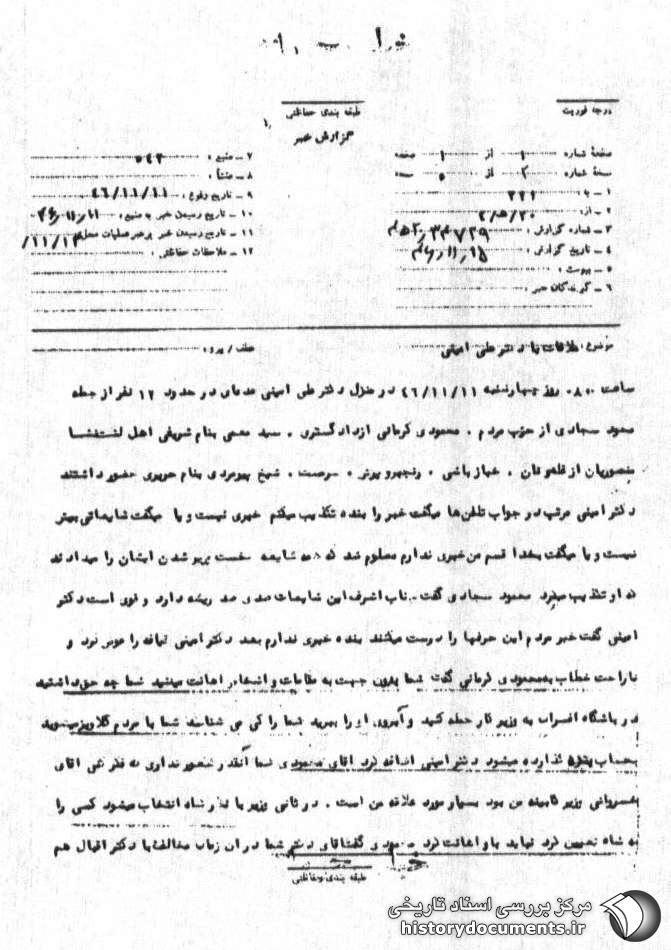 درجه فوریت
طبقه بندی حفاظتی
گزارش خبر
صفحهٔ شماره ۱ از ۱ صفحه
نسخهٔ شماره ۲ از ۵ نسخه
۱ - به : ۳۲۱
۲ - از : ۲۰/ه/۲
۳ - شماره گزارش :
۴ - تاریخ گزارش :
۵ - پیوست :
۶ - گیرندگان خبر :
۷ - منبع : ۵۴۳
۸ - منشأ :
۹ - تاریخ وقوع : ۴۶/۱۱/۱۱
۱۰ - تاریخ رسیدن خبر به منبع :
۱۱ - تاریخ رسیدن خبر برهبر عملیات محل :
۱۲ - ملاحظات حفاظتی :
موضوع : ملاقات با دکتر علی امینی
عطف / پیرو :
ساعت ۰۸۰۰ روز چهارشنبه ۴۶/۱۱/۱۱ در منزل دکتر علی امینی عده‌ای در حدود ۱۲ نفر از جمله
محمود سجادی از حزب مردم . محمودی کرمانی از دادگستری . سید معممی بنام شریفی اهل لشت‌نشا
منصوریان از قلهوکان . خبازباشی . رنجبر و سرمست . شیخ پیرمردی بنام حریری حضور داشتند
دکتر امینی مرتب در جواب تلفن‌ها میگفت خبر را بنده تکذیب میکنم خبری نیست و یا میگفت شایعاتی بیش
نیست و یا میگفت بخدا قسم من خبری ندارم معلوم شد که همه شایعه نخست وزیر شدن ایشان را میدادند
که او تکذیب میکرد محمود سجادی گفت این شایعات صدی صد ریشه دارد و قوی است دکتر
امینی گفت خبر مردم این حرفها را درست میکنند بنده خبری ندارم بعد دکتر امینی قیافه را عوض کرد و
ناراحت خطاب به محمودی کرمانی گفت شما بدون جهت به مقامات و اشخاص اهانت میکنید شما چه حق داشتید
در باشگاه افسران به وزیر کار حمله کنید و آبروی او را ببرید شما را کی می شناسد شما با مردم گلاویز میشوید
بحساب بنده گذارده میشود دکتر امینی اضافه کرد آقای محمودی شما آنقدر شعور نداری که فکر کنی آقای
خسروانی وزیر کابینه من بود بسیار مورد علاقه من است . در ثانی وزیر با نظر شاه انتخاب میشود کسی را
که شاه تعیین کرد نباید باو اهانت کرد محمودی گفت آقای دکتر شما در آن زمان مخالفت با دکتر اقبال هم
طبقه بندی حفاظتی
مرکز بررسی اسناد تاریخی
historydocuments.ir